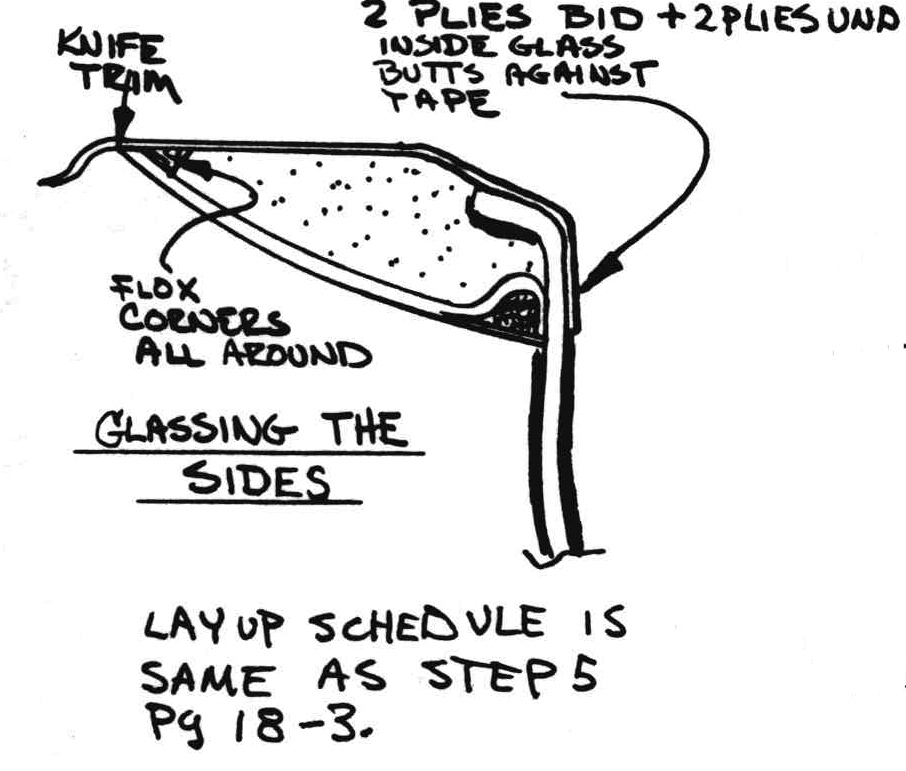 KNIFE
TRIM
2 PLIES BID + 2 PLIES UND
INSIDE GLASS
BUTTS AGAINST
TAPE
FLOX
CORNERS
ALL AROUND
GLASSING THE
SIDES
LAY UP SCHEDULE IS
SAME AS STEP 5
Pg 18-3.